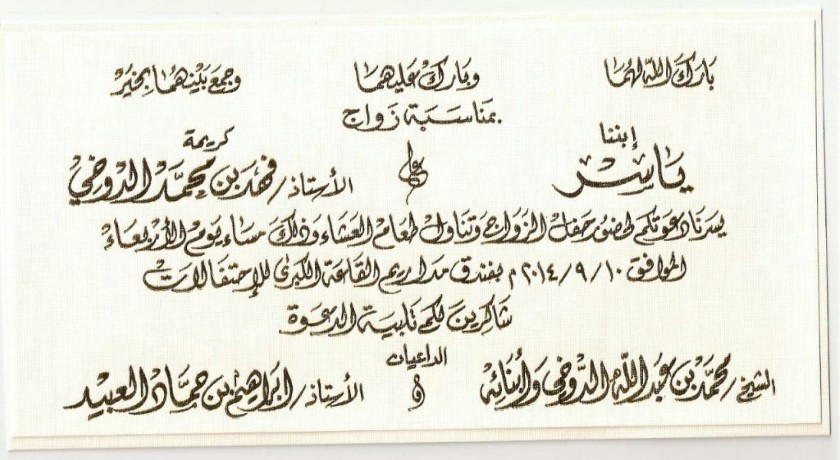 بارك الله لهما وبارك عليهما وجمع بينهما بخير
بمناسبة زواج
إبننا كريمة
ياسر على الأستاذ/ فهد بن محمد الدوخي
يسرنا دعوتكم لحضور حفل الزواج وتناول طعام العشاء وذلك مساء يوم الأربعاء
الموافق ٢٠١٤/٩/١٠م بفندق مداريم القاعة الكبرى للإحتفالات
شاكرين لكم تلبية الدعوة
الداعيان
الشيخ/ محمد بن عبدالله الدوخي وأبنائه و الأستاذ/ ابراهيم بن حماد العبيد